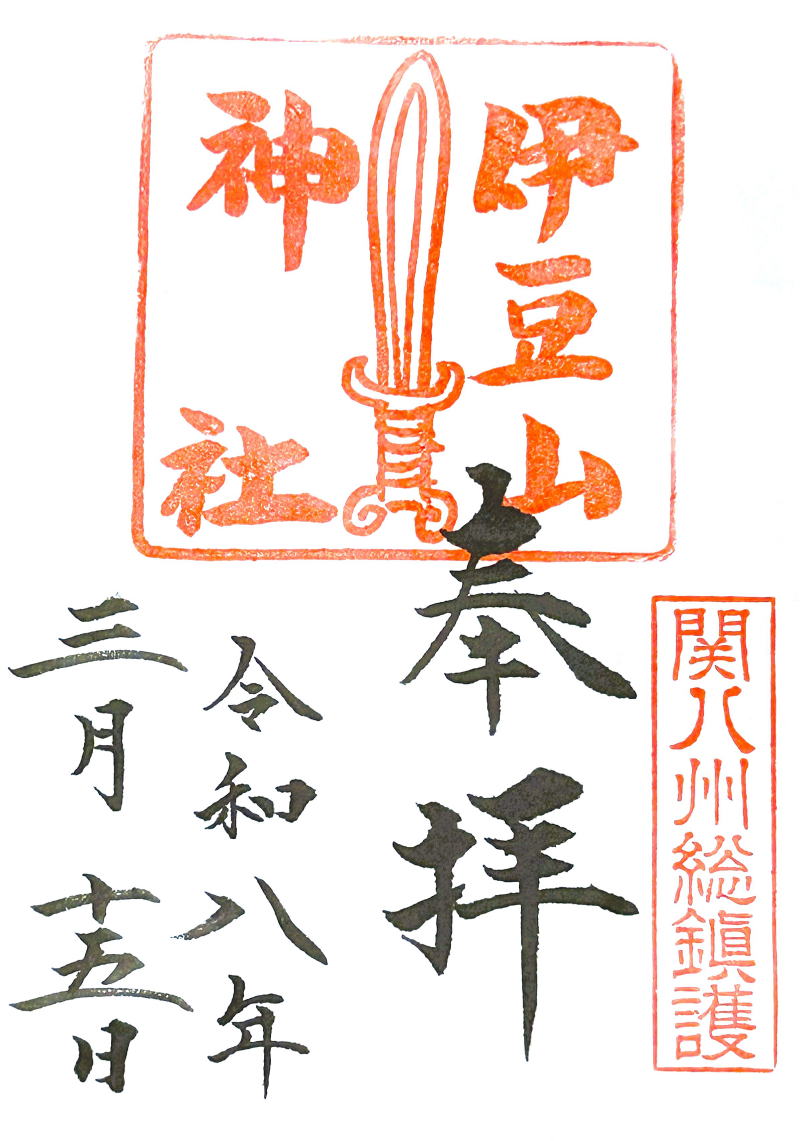 関八州総鎮護
伊豆山
神社
奉拝
令和八年
三月十五日